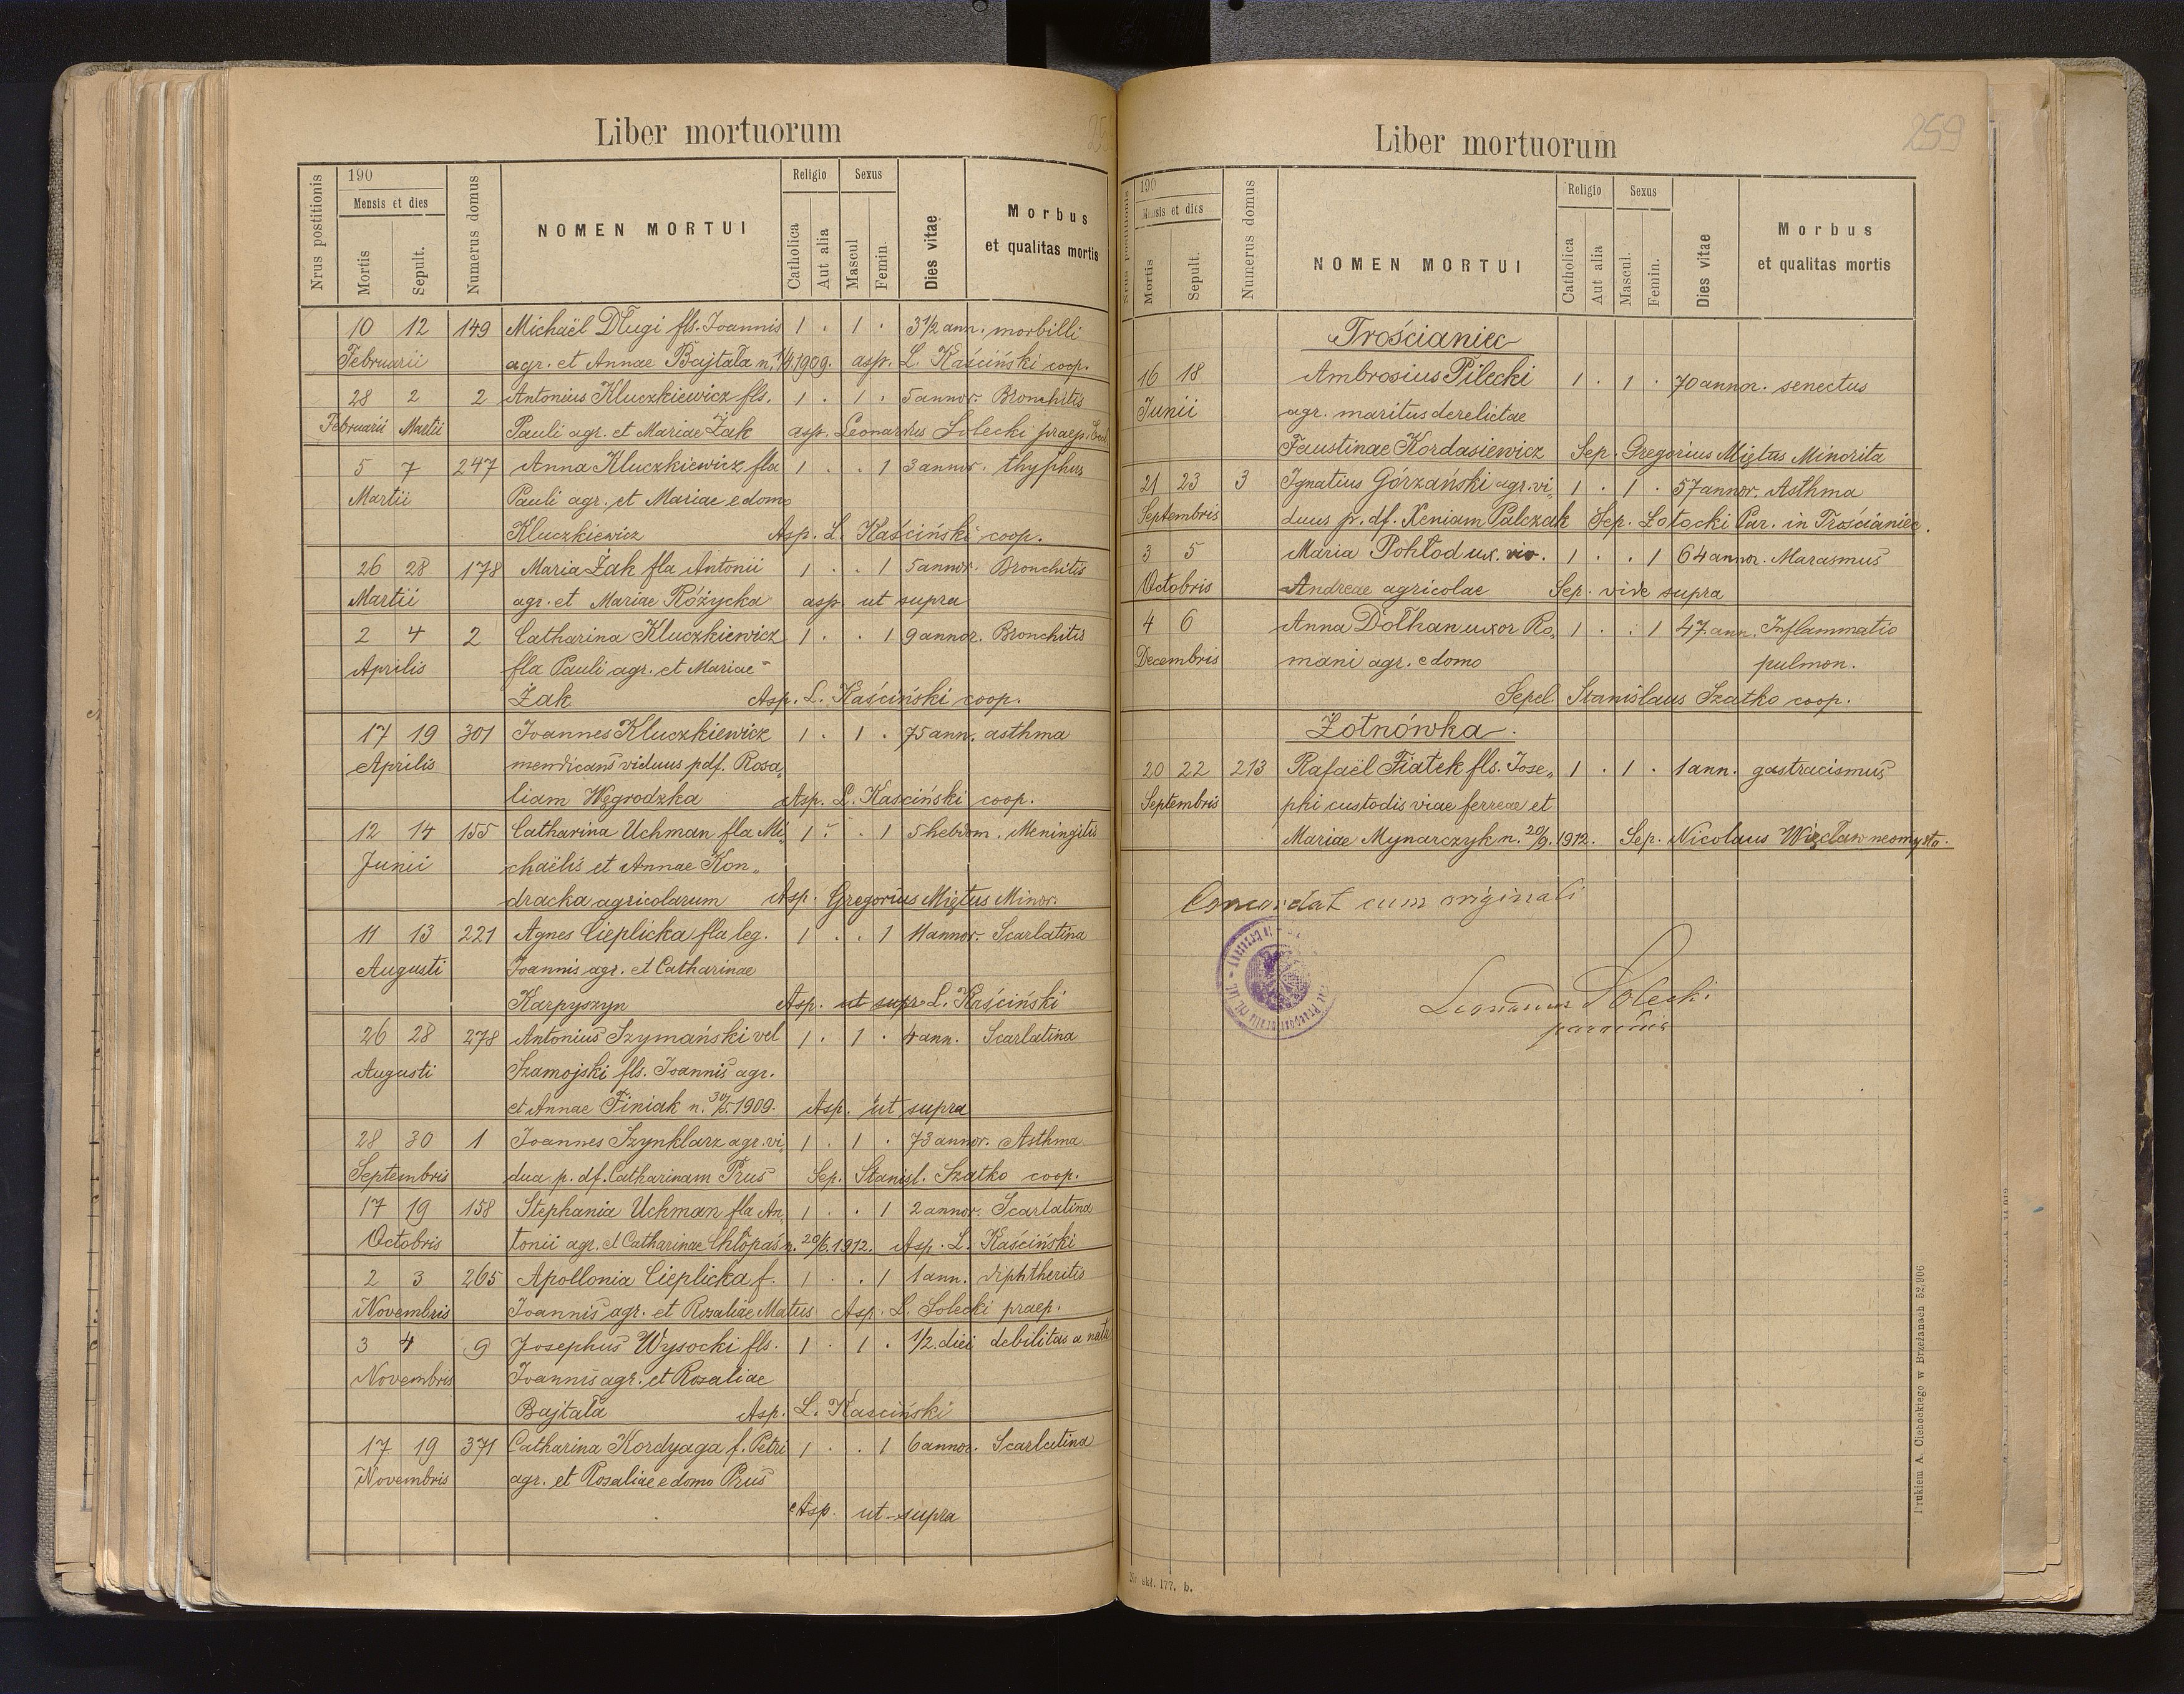 Liber mortuorum
Nrus postitionis
190
Mensis et dies
Mortis
Sepult.
Numerus domus
NOMEN MORTUI
Religio
Catholica
Aut alia
Sexus
Mascul
Femin.
Dies vitae
Morbus
et qualitas mortis
10 12 149 Michaël Długi fls. Joannis 1 . 1 . 3 1/2 ann. morbilli
Februarii agr. et Annae Bajtala n. 1909. asp. L. Kaściński coop.
28 2 2 Antonius Kluczkiewicz fls. 1 . 1 . 5 annor. Bronchitis
Februarii Martii Pauli agr. et Mariae Żak asp. Leonardus Solecki praep.
5 7 247 Anna Kluczkiewicz fla 1 . . 1 3 annor. thyphus
Martii Pauli agr. et Mariae e domo
Kluczkiewicz Asp. L. Kaściński coop.
26 28 178 Maria Żak fla Antonii 1 . . 1 5 annor. Bronchitis
Martii agr. et Mariae Różycka asp. ut supra
2 4 2 Catharina Kluczkiewicz 1 . . 1 9 annor. Bronchitis
Aprilis fla Pauli agr. et Mariae
Żak Asp. L. Kaściński coop.
17 19 301 Joannes Kluczkiewicz 1 . 1 . 75 ann. asthma
Aprilis mendicans viduus p df. Rosa„
liam Węgrodzka Asp. L. Kaściński coop.
12 14 155 Catharina Uchman fla Mi„ 1 . . 1 5 hebdom. Meningitis
Junii chaëlis et Annae Kon„
dracka agricolarum Asp. Gregorius Miętus Minor.
11 13 221 Agnes Cieplicka fla leg. 1 . . 1 11 annor. Scarlatina
Augusti Joannis agr. et Catharinae
Karpyszyn Asp. ut supr L. Kaściński
26 28 278 Antonius Szymański vel 1 . 1 . 4 ann. Scarlatina
Augusti Szamojski fls. Joannis agr.
et Annae Finiak n. 30/5. 1909. Asp. ut supra
28 30 1 Joannes Szynklarz agr. vi„ 1 . 1 . 73 annor. Asthma
Septembris dua p. df. Catharinam Prus Sep. Stanisl. Szatko coop.
17 19 158 Stephania Uchman fla An„ 1 . . 1 2 annor. Scarlatina
Octobris tonii agr. et Catharinae Chłopaś n. 20/6. 1912. Asp. L. Kaściński
2 3 265 Apollonia Cieplicka f. 1 . . 1 1 ann. diphtheritis
Novembris Joannis agr. et Rosaliae Matus Asp. L. Solecki praep.
3 4 9 Josephus Wysocki fls. 1 . 1 . 1/2. diei debilitas a natu
Novembris Joannis agr. et Rosaliae
Bajtala Asp. L. Kasciński
17 19 371 Catharina Kordyaga f. Petri 1 . . 1 6 annor. Scarlatina
Novembris agr. et Rosaliae e domo Prus
Asp. ut supra
Liber mortuorum
259
Nrus postitionis
190
Mensis et dies
Mortis
Sepult.
Numerus domus
NOMEN MORTUI
Religio
Catholica
Aut alia
Sexus
Mascul.
Femin.
Dies vitae
Morbus
et qualitas mortis
Trościaniec
16 18 Ambrosius Pilecki 1 . 1 . 70 annor. senectus
Junii agr. maritus derelictae
Faustinae Kordasiewicz Sep. Gregorius Miętus Minorita
21 23 3 Ignatius Górzański agr. vi„ 1 . 1 . 57 annor. Asthma
Septembris duus p. df. Xeniam Palczak Sep. Zołocki Par. in Trościaniec.
3 5 Maria Pohłod ux. 1 . . 1 64 annor. Marasmus
Octobris Andreae agricolae Sep. vide supra
4 6 Anna Dołhan uxor Ro„ 1 . . 1 47 ann. Inflammatio
Decembris mani agr. e domo pulmon.
Sepel. Stanislaus Szatko coop.
Zotnówka.
20 22 213 Rafaël Fiatek fls. Jose„ 1 . 1 . 1 ann. gastracismus
Septembris phi custodis viae ferreae et
Mariae Mynarczyk n. 20/9. 1912. Sep. Nicolaus Więcław neomysta.
Concordat cum originali
Leonardus Solecki
parochus
Drukiem A. Cichockiego w Brzeżanach 52/906
Nr. skł. 177. b.